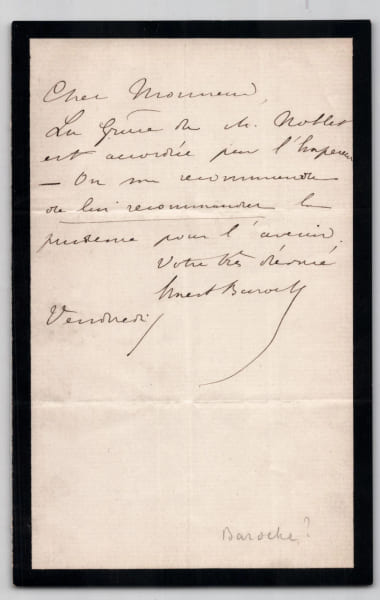 Cher Monsieur,
La Grâce de M. Noblet
est accordée par l'Empereur
— On me recommande
de lui recommander la
prudence pour l'avenir.
Votre très dévoué
Ernest Baroche
Vendredi
Baroche?